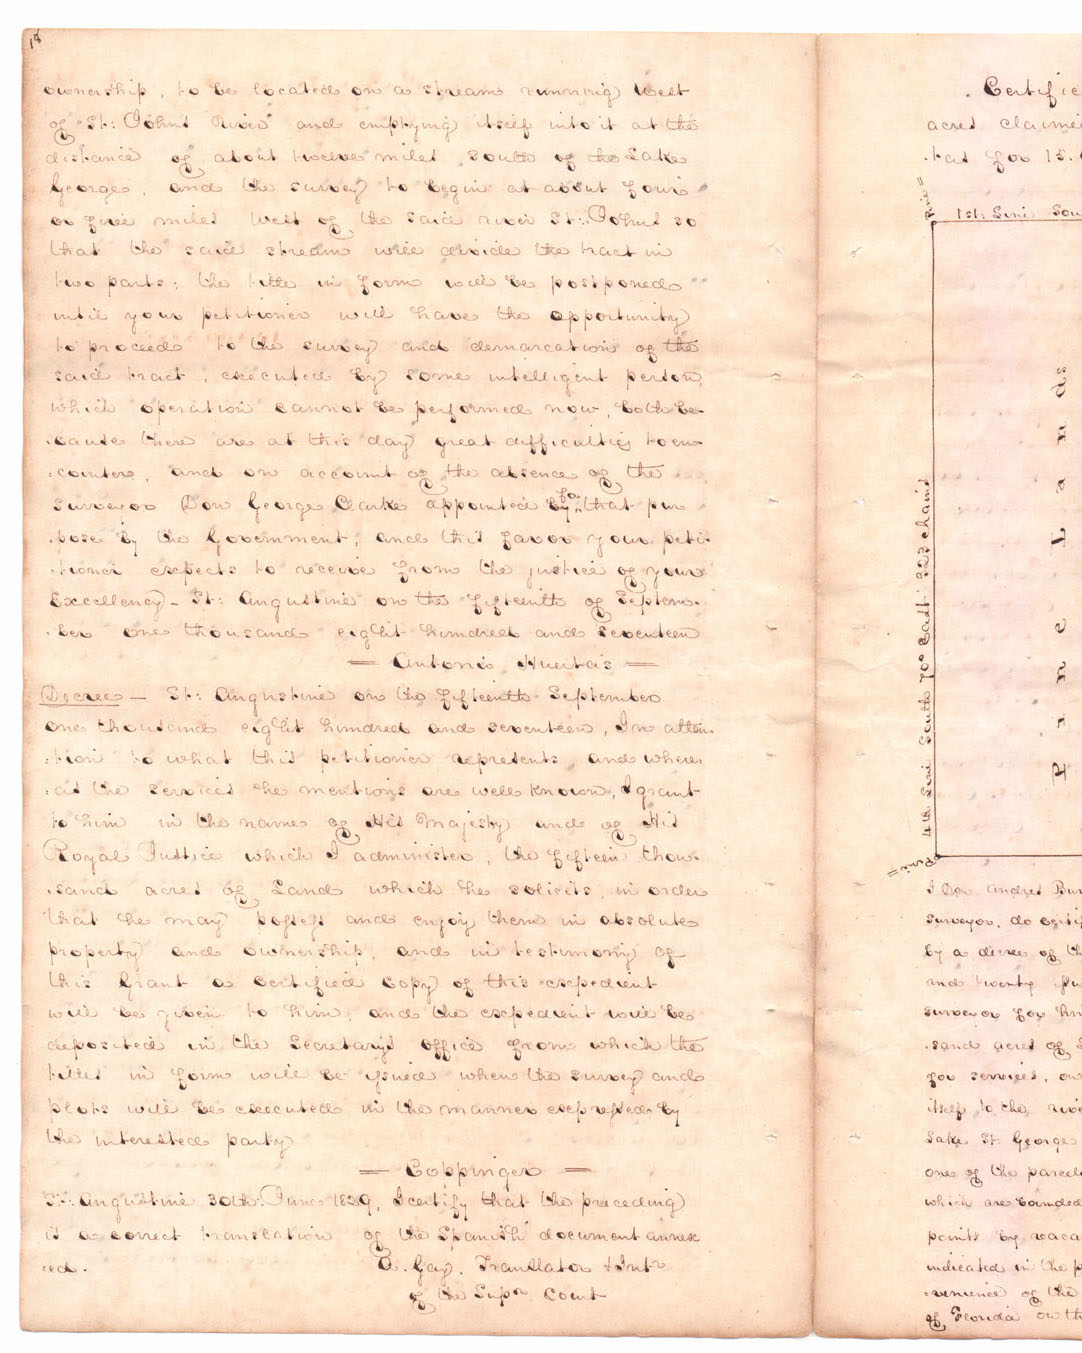 18
ownership, to be located on a stream running West
of St: John's River and emptying itself into it at the
distance of about twelve miles south of the Lake
George, and the survey to begin at about four
or five miles West of the said river St: Johns so
that the said stream will divide the tract in
two parts; the title in form will be postponed
until your petitioner will have the opportunity
to proceed to the survey and demarcation of the
said tract, executed by some intelligent person,
which operation cannot be performed now, both be-
:cause there are at this day great difficulties to en-
:counter, and on account of the absence of the
surveyor Don George Clarke appointed by for that pur
:pose by the Government, and this favor your peti-
:tioner expects to receive from the justice of your
Excellency – St: Augustine on the fifteenth of Septem-
:ber one thousand eight hundred and seventeen
= Antonio Huertas =
Decree – St: Augustine on the fifteenth September
one thousand eight hundred and seventeen, In atten-
:tion to what this petitioner represents, and where-
:as the services he mentions are well known, I grant
to him in the name of His Majesty and of His
Royal Justice which I administer, the fifteen thou-
:sand acres of Land which he solicits, in order
that he may possess and enjoy them in absolute
property and ownership, and in testimony of
this Grant a Certified Copy of this expedient
will be given to him, and the expedient will be
deposited in the Secretary's office from which the
titles in form will be issued when the survey and
plots will be executed in the manner expressed by
the interested party
= Coppinger =
St: Augustine 30th: June 1829, I certify that the preceding
is a correct translation of the Spanish document annex
:ed. B. Gay. Translator & Intr
of the Supr Court
Certific
acres claimed
1st: Line Sou
Pine=
4th Line South 70° East 323 chains
P i n e L a n d s
Pine=
I Don Andres Bur
surveyor, do certif
by a decree of th
and twenty
surveyor for him
:sand acres of L
for services, on
itself to the rive
Lake St: George
one of the parcels
which are bounded
points by vaca
indicated in the p
:venience of the
of Florida on th